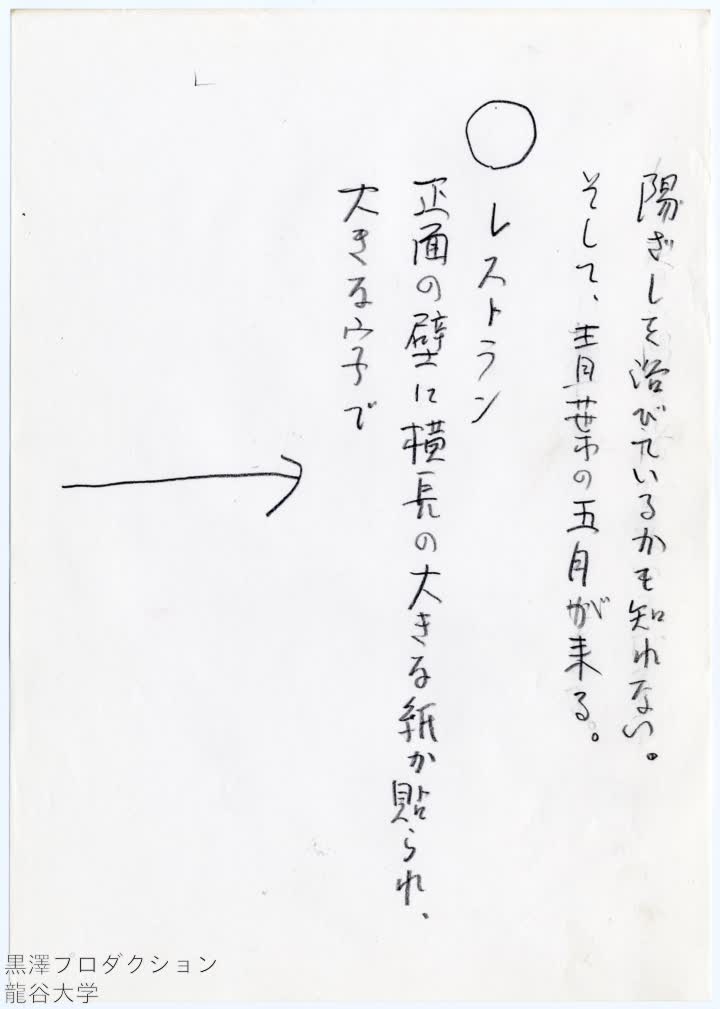 陽ざしを浴びているかも知れない。
そして、青葉の五月が来る。
○ レストラン
正面の壁に横長の大きな紙が貼られ、
大きな字で
黒澤プロダクション
龍谷大学